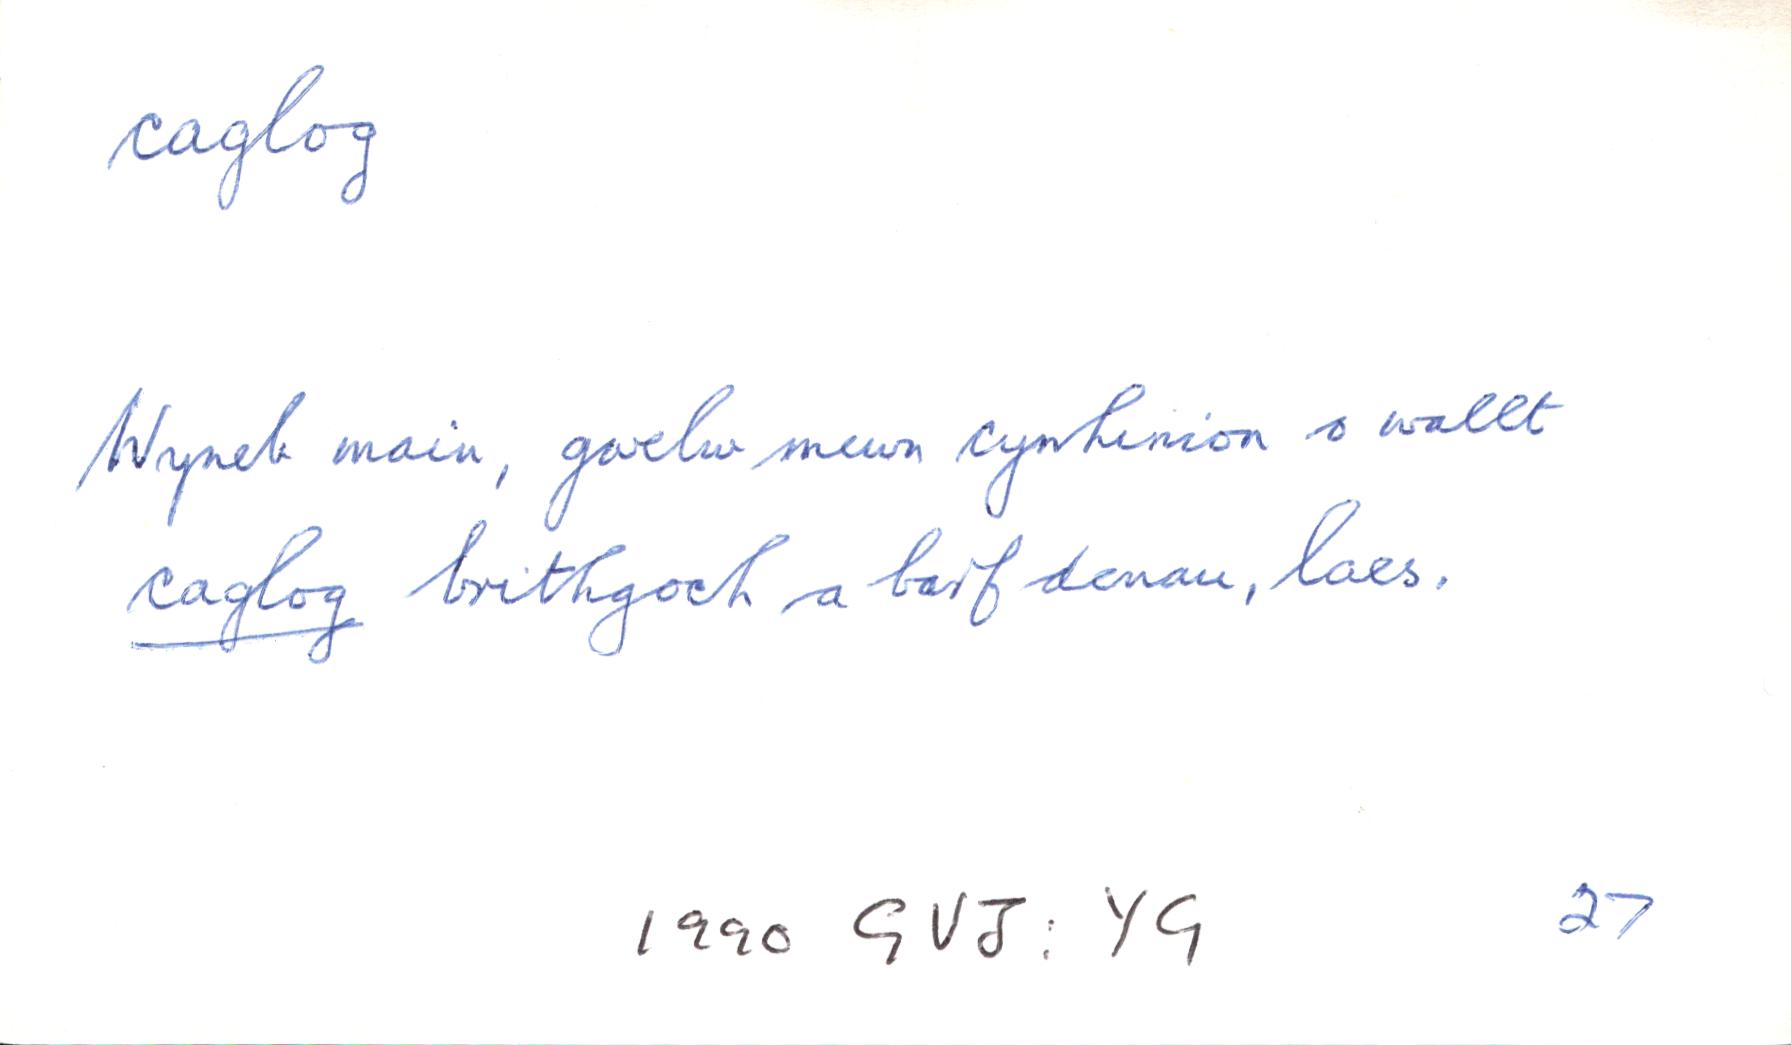 caglog
Wyneb main, gwelw mewn cynhinion o wallt
caglog brithgoch a barf denau, laes.
1990 GVJ: YG 27